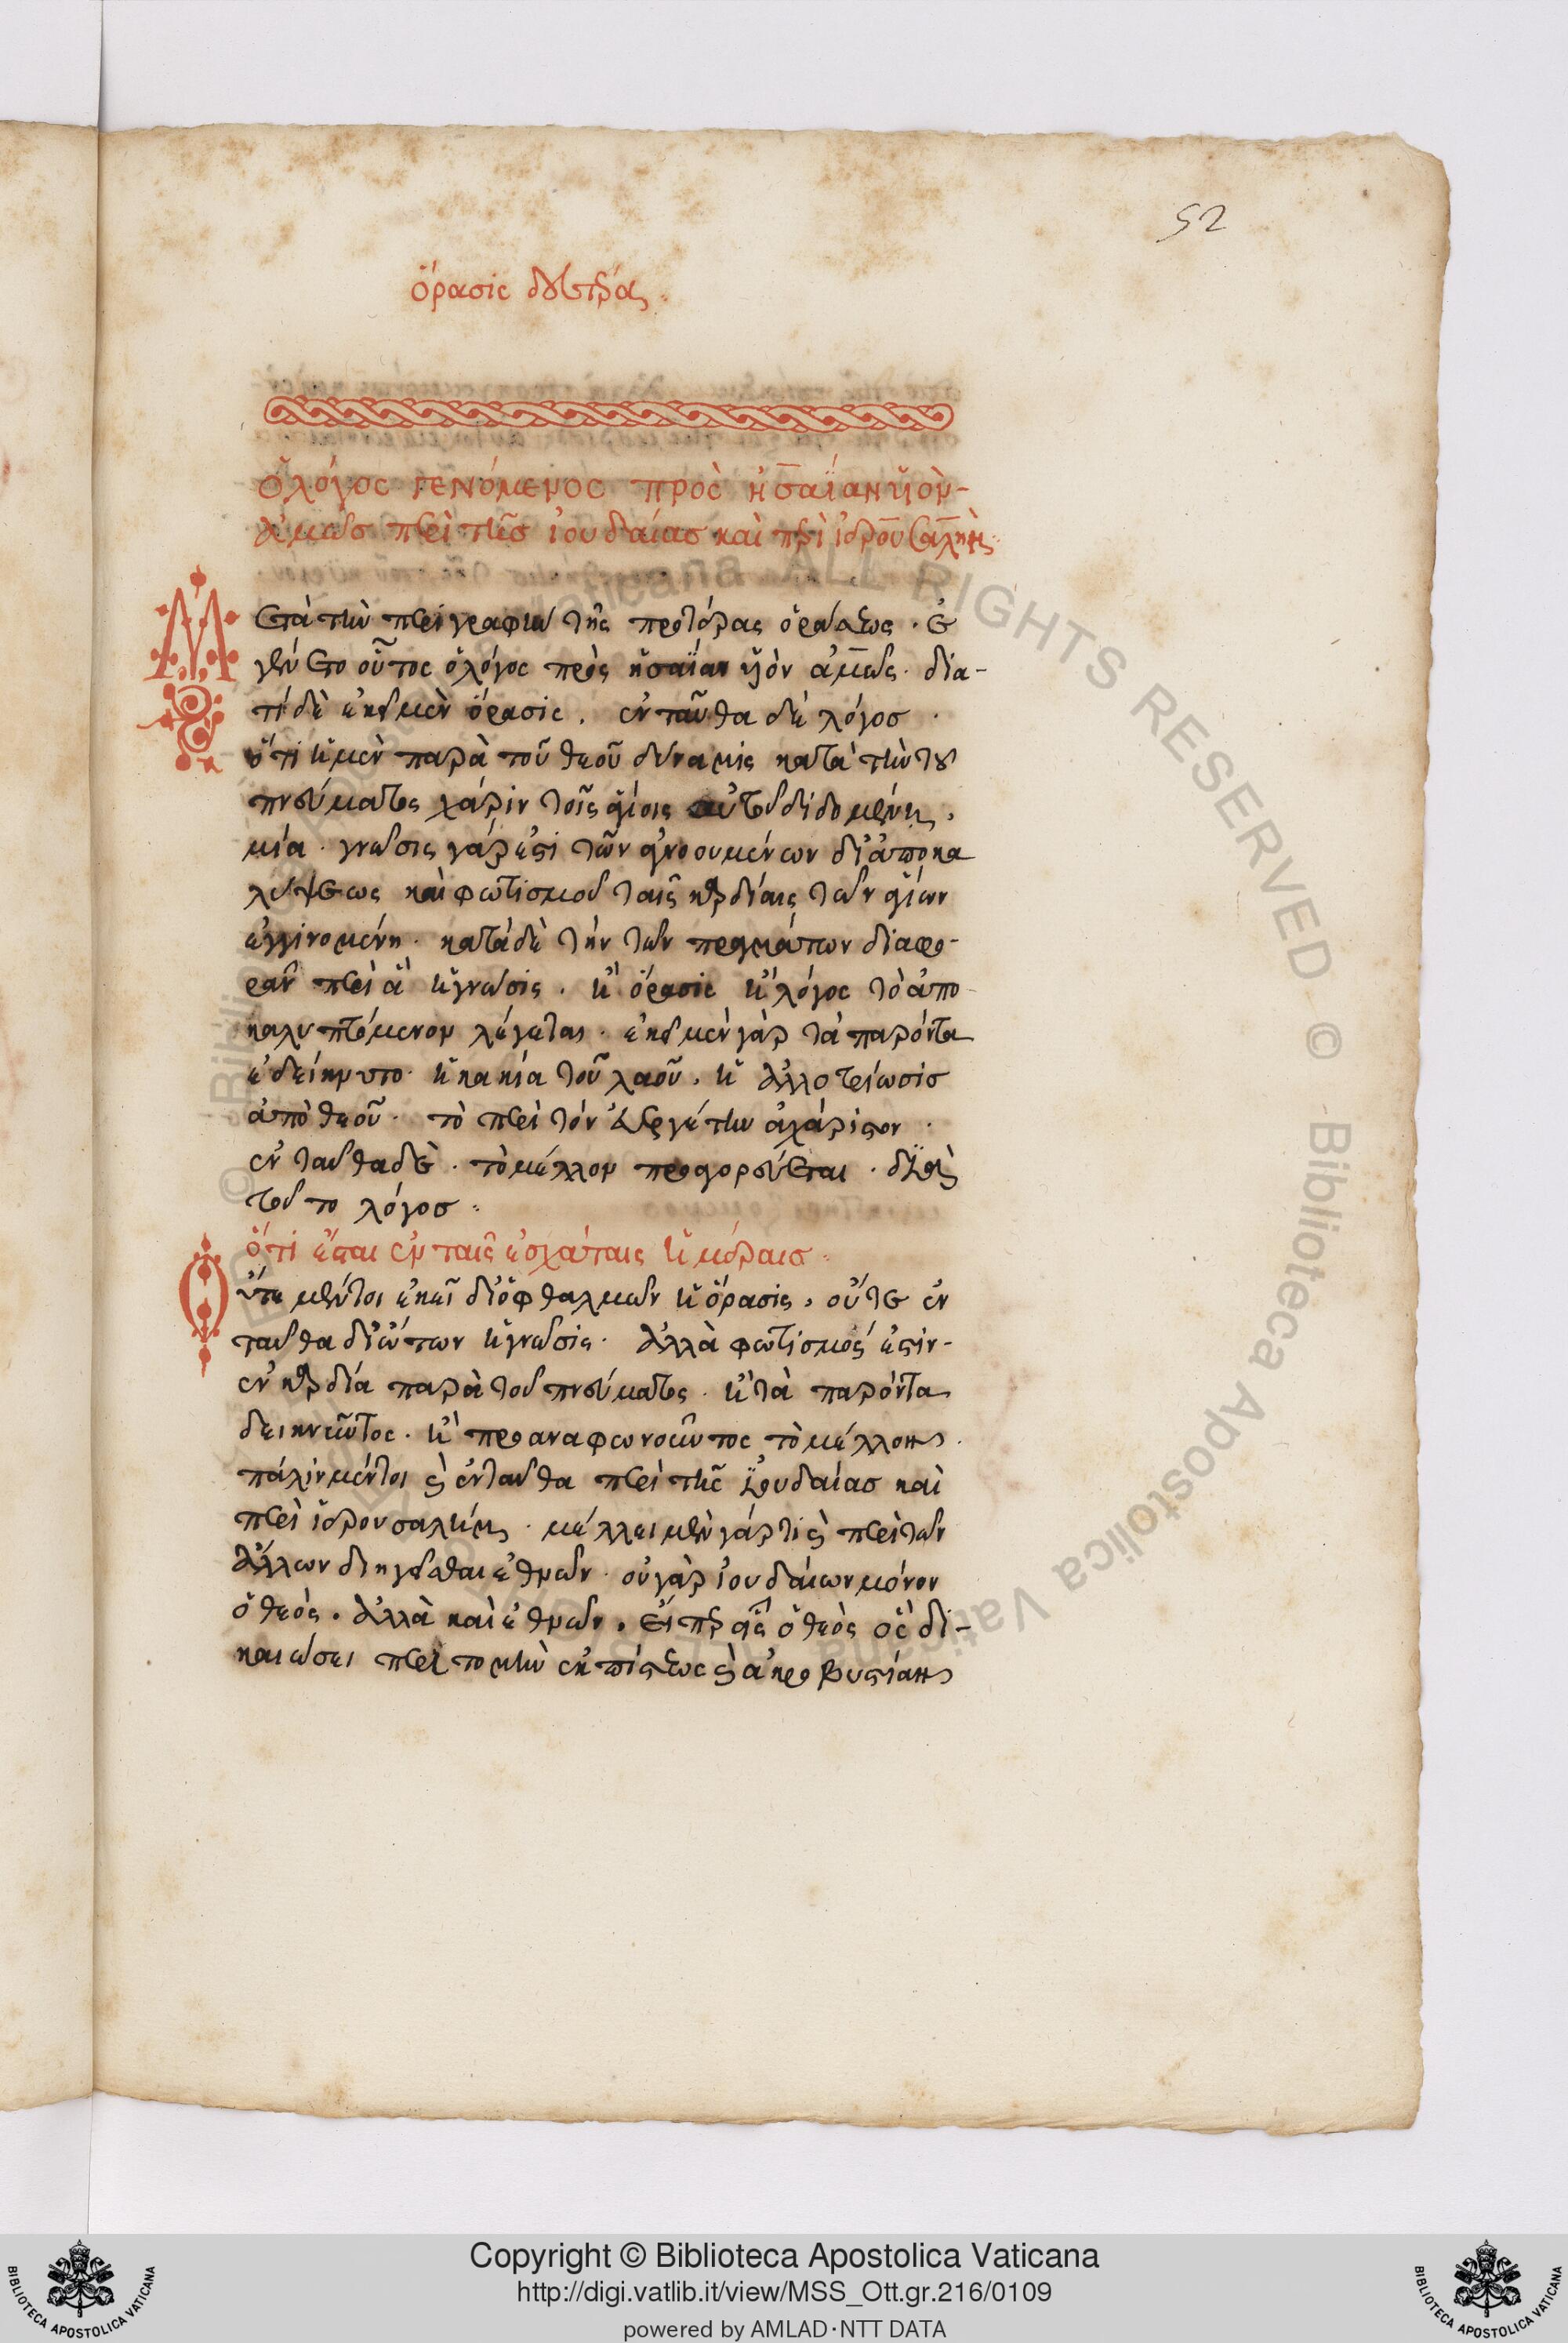 52
ὅρασις δευτέρα
Ὁ λόγος γενόμενος πρὸς ἠσαΐαν υἱὸν
ἀμὼς περὶ τῆς ἰουδαίας καὶ περὶ ἱερουσαλήμ
Μετὰ τὴν περιγραφὴν τῆς προτέρας ὁράσεως. ἐ
γένετο οὗτος ὁ λόγος πρὸς ἠσαΐαν υἱὸν ἀμὼς. δια-
τί δὲ ἐκεῖ μὲν ὅρασις. ἐνταῦθα δὲ λόγος.
ὅτι ἡ μὲν παρὰ τοῦ θεοῦ δύναμις κατὰ τὴν τοῦ
πνεύματος χάριν τοῖς ἁγίοις αὐτοῦ διδομένη.
μία. γνῶσις γάρ ἐστι τῶν ἀγνοουμένων δι' ἀποκα
λύψεως καὶ φωτισμοῦ ταῖς καρδίαις τῶν ἁγίων
ἐγγινομένη. κατὰ δὲ τὴν τῶν πραγμάτων διαφο-
ρὰν περὶ ἃ ἡ γνῶσις. ἢ ὅρασις ἢ λόγος τὸ ἀπο
καλυπτόμενον λέγεται. ἐκεῖ μὲν γὰρ τὰ παρόντα
ἐδείκνυτο. ἡ κακία τοῦ λαοῦ. ἡ ἀλλοτρίωσις
ἀπὸ θεοῦ. τὸ περὶ τὸν εὐεργέτην ἀχάριστον.
ἐνταῦθα δὲ. τὸ μέλλον προαγορεύεται. διὸ καὶ
τοῦτο λόγος.
ὅτι ἔσται ἐν ταῖς ἐσχάταις ἡμέραις
Οὔτε μέντοι ἐκεῖ δι' ὀφθαλμῶν ἡ ὅρασις, οὔτε ἐν
ταῦθα δι' ὤτων ἡ γνῶσις. ἀλλὰ φωτισμός ἐστιν
ἐν καρδία παρὰ τοῦ πνεύματος. ἢ τὰ παρόντα
δεικνῦντος. ἢ προαναφωνοῦντος τὸ μέλλον.
πάλιν μέντοι καὶ ἐνταῦθα περὶ τῆς ἰουδαίας καὶ
περὶ ἱερουσαλήμ. μέλλει μὲν γάρ τι καὶ περὶ τῶν
ἄλλων διηγεῖσθαι ἐθνῶν. οὐ γὰρ ἰουδαίων μόνον
ὁ θεός. ἀλλὰ καὶ ἐθνῶν. εἴπερ εἷς ὁ θεὸς ὃς δι-
καιώσει περιτομὴν ἐκ πίστεως καὶ ἀκροβυστίαν
Copyright © Biblioteca Apostolica Vaticana
http://digi.vatlib.it/view/MSS_Ott.gr.216/0109
powered by AMLAD·NTT DATA
BIBLIOTECA APOSTOLICA VATICANA
BIBLIOTECA APOSTOLICA VATICANA